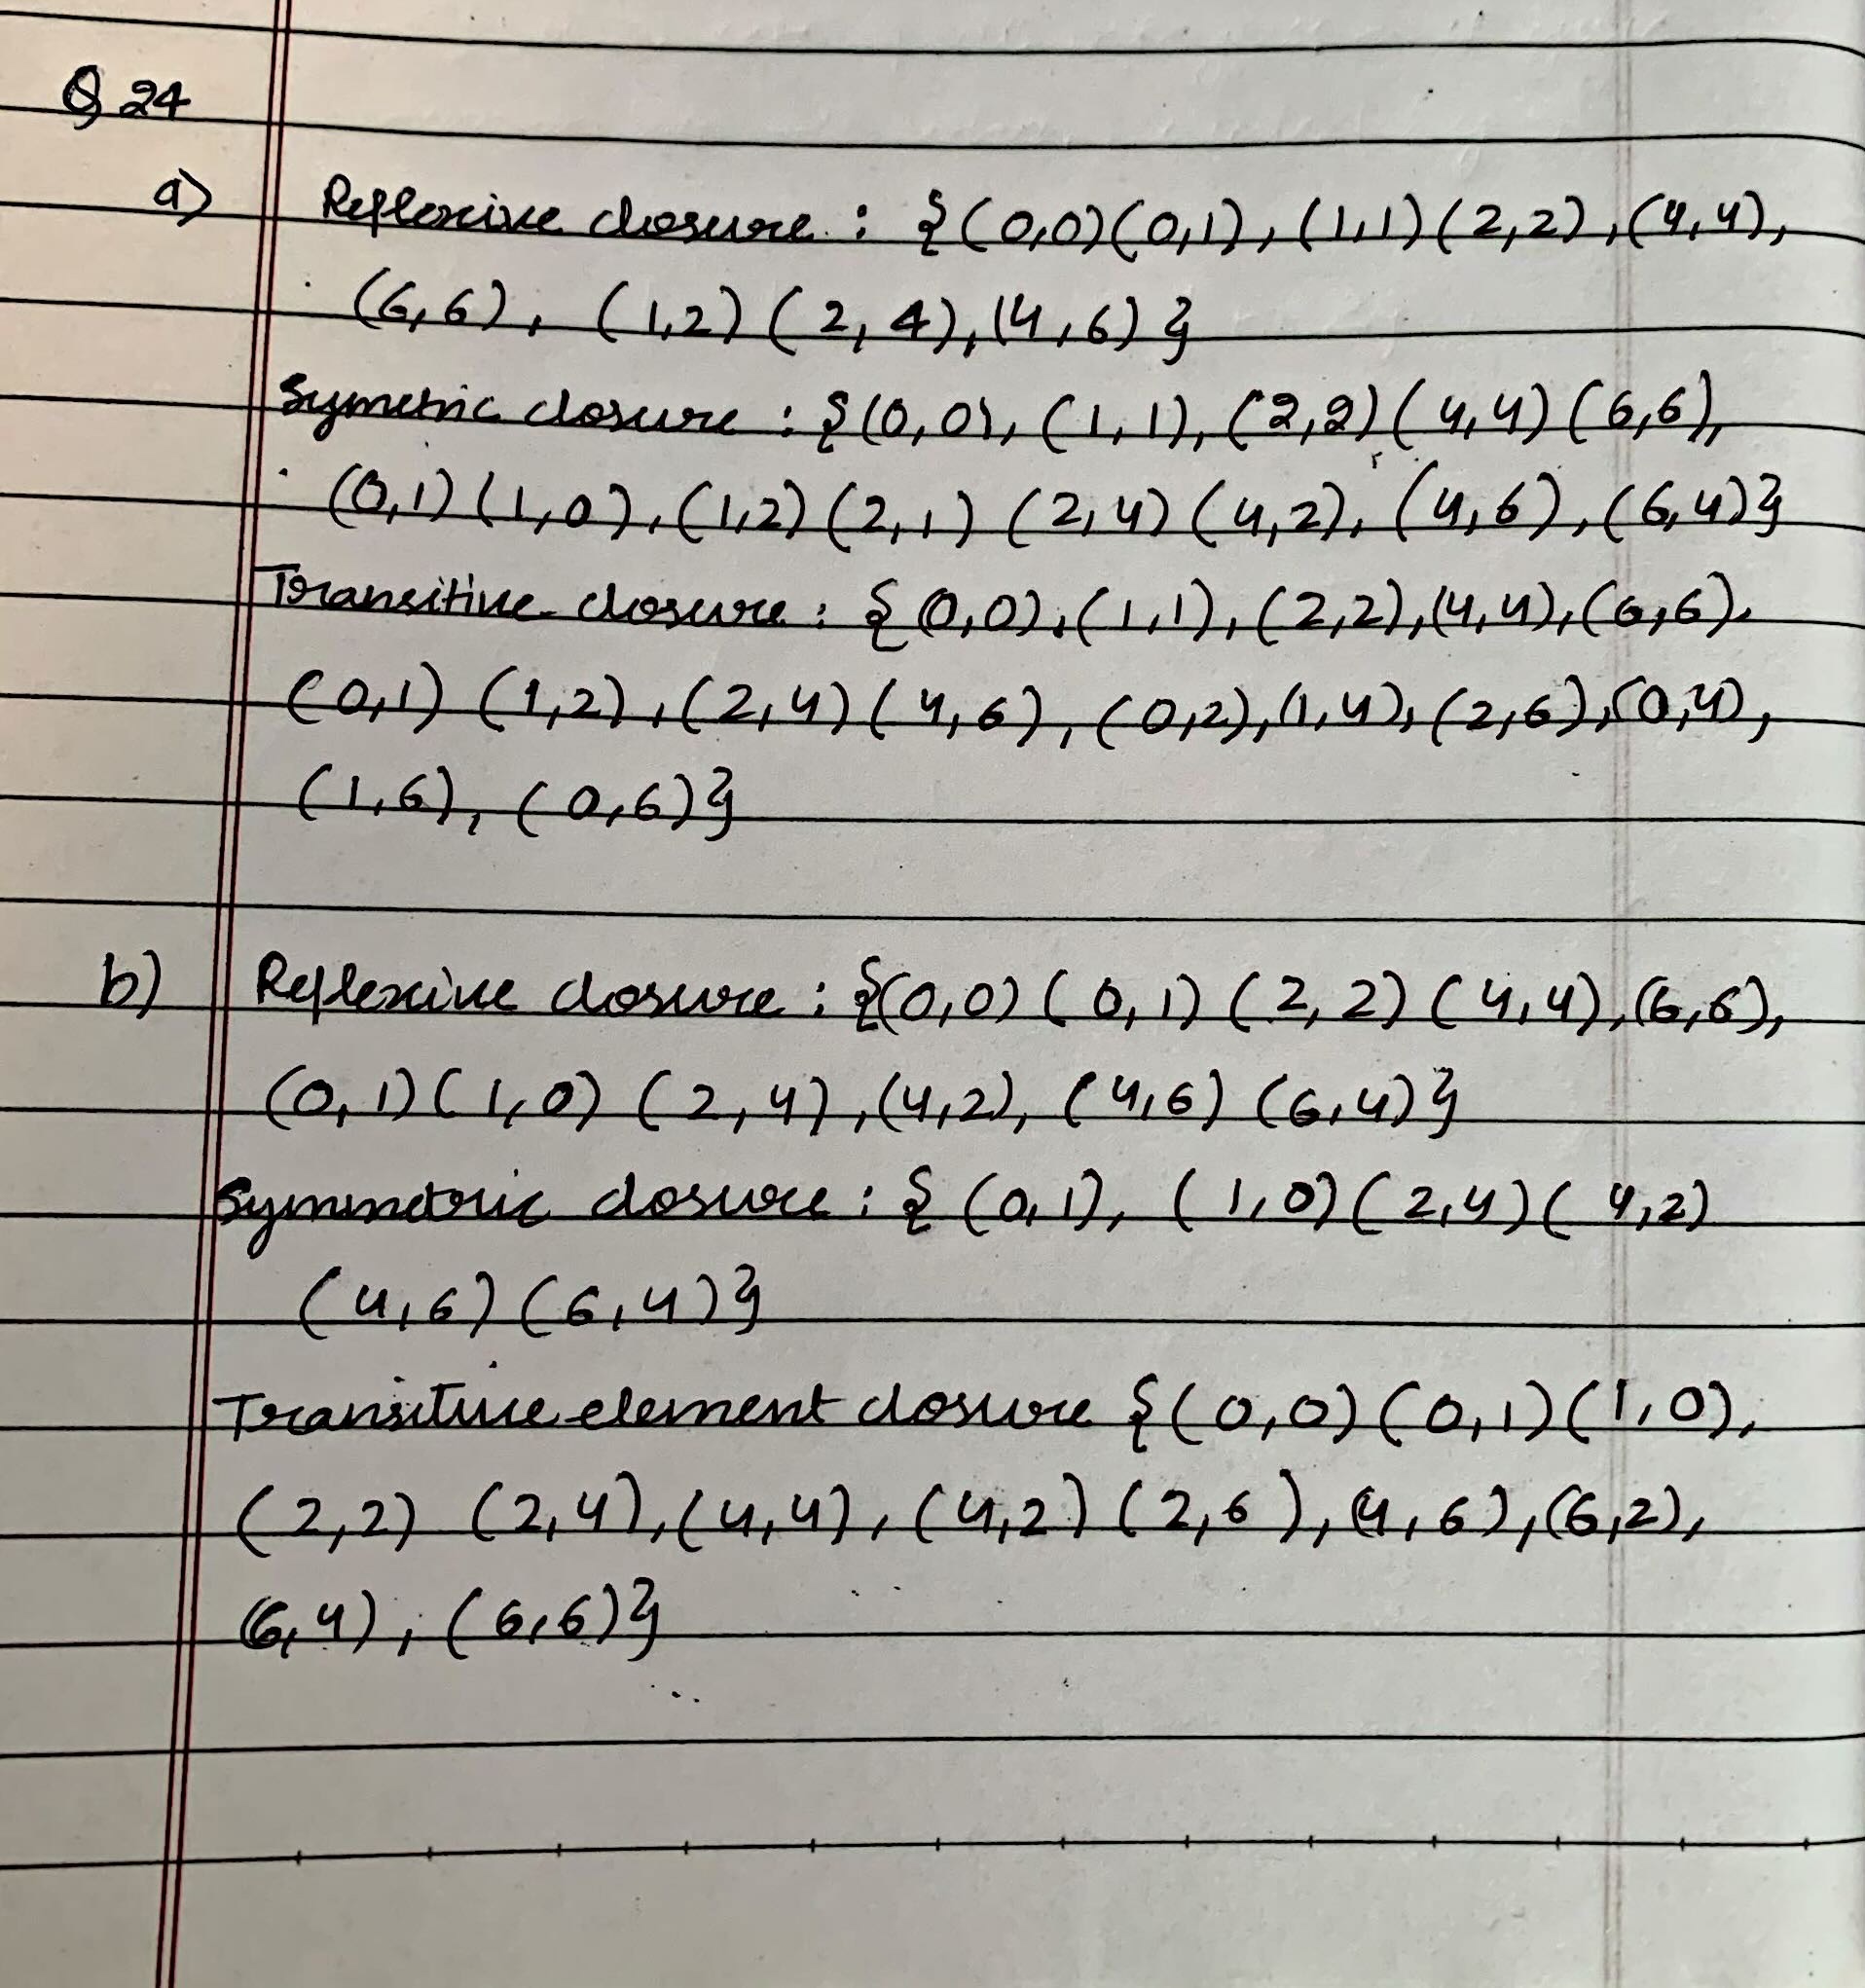 Q 24
a) Reflexive closure : {(0,0)(0,1), (1,1)(2,2), (4,4),
(6,6), (1,2)(2,4), (4,6)}
Symetric closure : {(0,0), (1,1), (2,2)(4,4)(6,6),
(0,1)(1,0), (1,2)(2,1)(2,4)(4,2), (4,6), (6,4)}
Transitive closure : {(0,0), (1,1), (2,2), (4,4), (6,6).
(0,1) (1,2), (2,4)(4,6), (0,2), (1,4), (2,6), (0,4),
(1,6), (0,6)}
b) Reflexive closure : {(0,0)(0,1)(2,2)(4,4), (6,6),
(0,1)(1,0)(2,4), (4,2), (4,6)(6,4)}
Symmetric closure : {(0,1), (1,0)(2,4)(4,2)
(4,6)(6,4)}
Transitive element closure {(0,0)(0,1)(1,0),
(2,2) (2,4), (4,4), (4,2)(2,6), (4,6), (6,2),
(6,4), (6,6)}